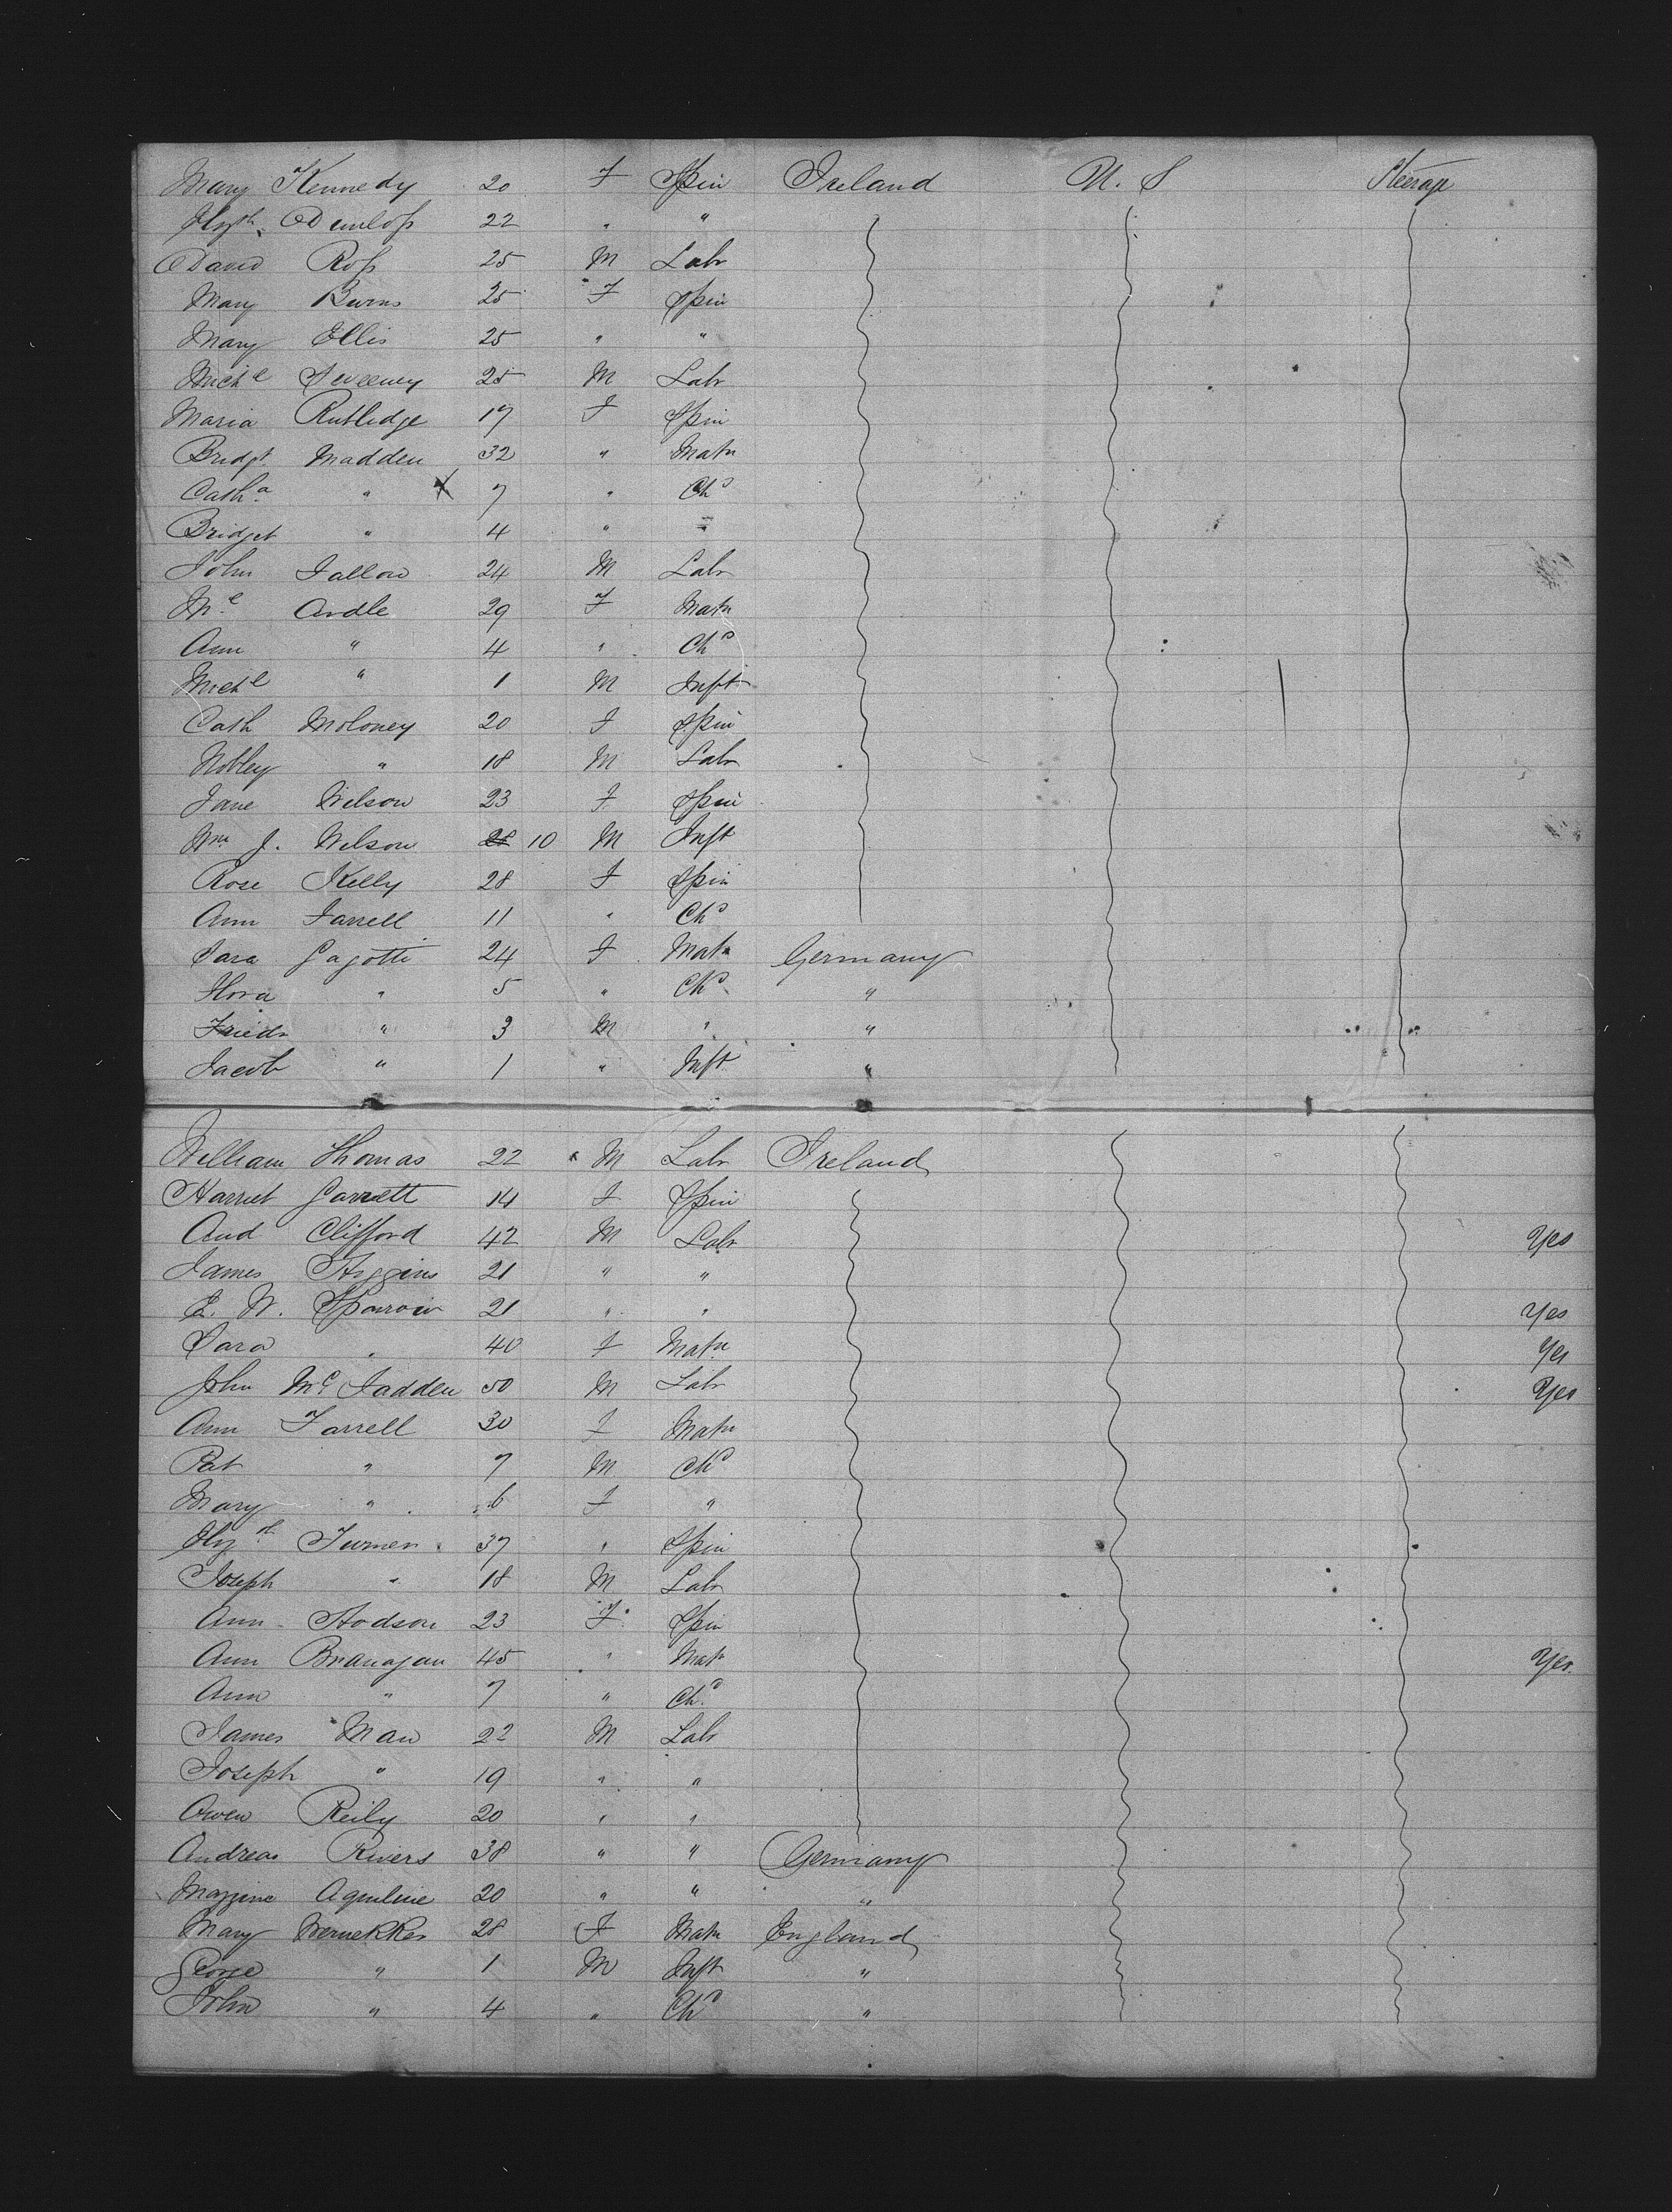 Mary Kennedy 20 F Spin Ireland U. S Steerage
Elizth Dunlop 22 " "
David Ross 25 M Labr
Mary Burns 25 F Spin
Mary Ellis 25 " "
Michl Sweeney 25 M Labr
Maria Rutledge 17 F Spin
Bridgt Madden 32 " Matn
Catha " X 7 " Chd
Bridget " 4 " "
John Fallow 24 M Labr
Ardle 29 F Matn
Ann " 4 " Chd
Michl " 1 M Inft
Cath Moloney 20 F Spin
" 18 M Labr
Jane Wilson 23 F Spin
Wm J. Wilson 28 10 M Inft
Rose Kelly 28 F Spin
Ann Farrell 11 " Chd
Sara Gagotti 24 F Matn Germany
Flora " 5 " Chd "
Friedr " 3 M " "
Jacob " 1 " Inft "
William Thomas 22 M Labr Ireland
Harriet Garrett 14 F Spin
And Clifford 42 M Labr Yes
James Higgins 21 " "
E. W. Sparrow 21 " " Yes
Sara " 40 F Matn Yes
John Mc Fadden 50 M Labr Yes
Ann Farrell 30 F Matn
Pat " 7 M Chd
Mary " 6 F "
Elizth Turner 37 " Spin
Joseph " 18 M Labr
Ann Hodson 23 F Spin
Ann Branagan 45 " Matn Yes.
Ann " 7 " Chd
James Maw 22 M Labr
Joseph " 19 " "
Owen Reily 20 " "
Andreas Rivers 38 " " Germany
Mazzine Aquiline 20 " " "
Mary Wernekker 28 F Matn England
George " 1 M Inft "
John " 4 " Chd "